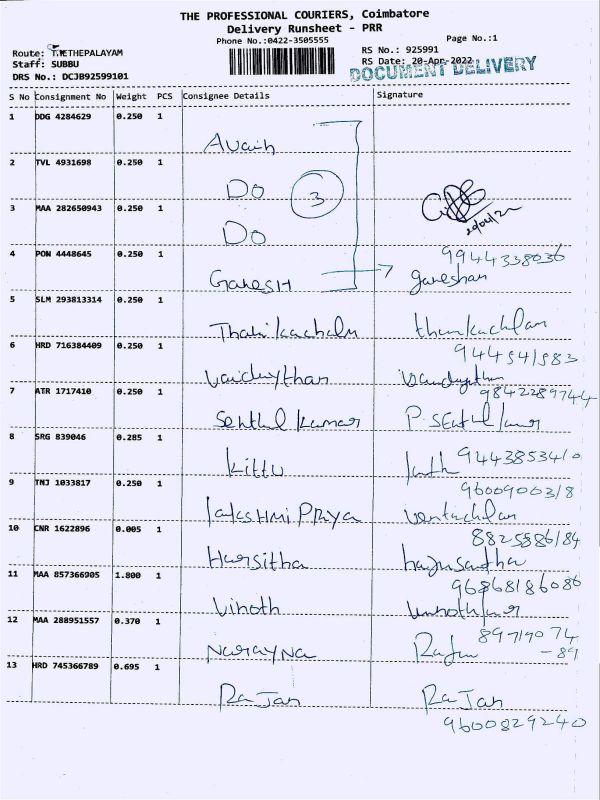 THE PROFESSIONAL COURIERS, Coimbatore
Delivery Runsheet - PRR
Phone No.:0422-3505555
Page No.:1
Route: T.METHEPALAYAM
RS No.: 925991
Staff: SUBBU
RS Date: 20-Apr-2022
DRS No.: DCJB92599101
DOCUMENT DELIVERY
S No Consignment No Weight PCS Consignee Details Signature
1 DDG 4284629 0.250 1
2 TVL 4931698 0.250 1
DO
3
3 MAA 282650943 0.250 1
DO
20/04/22
4 PON 4448645 0.250 1
9944338036
GANESH ganeshan
5 SLM 293813314 0.250 1
6 HRD 716384409 0.250 1
944541583
7 ATR 1717410 0.250 1
9842289744
Senthil kumar
8 SRG 839046 0.285 1
kittu 9443853410
9 TNJ 1033817 0.250 1
9600900318
lakshmi PRiya
10 CNR 1622896 0.005 1
8825886184
Harsitha
11 MAA 857366905 1.800 1
96868186086
Vinoth
12 MAA 288951557 0.370 1
89719074
-89
NARAYNA
13 HRD 745366789 0.695 1
RaJan RaJan
9600829240